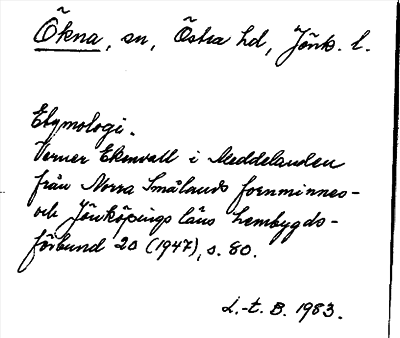 Ökna, sn, Östra hd, Jönk. l.
Etymologi.
Verner Ekenvall i Meddelanden
från Norra Smålands fornminnes-
och Jönköpings läns hembygds-
förbund 20 (1947), s. 80.
L.-t. B. 1983.